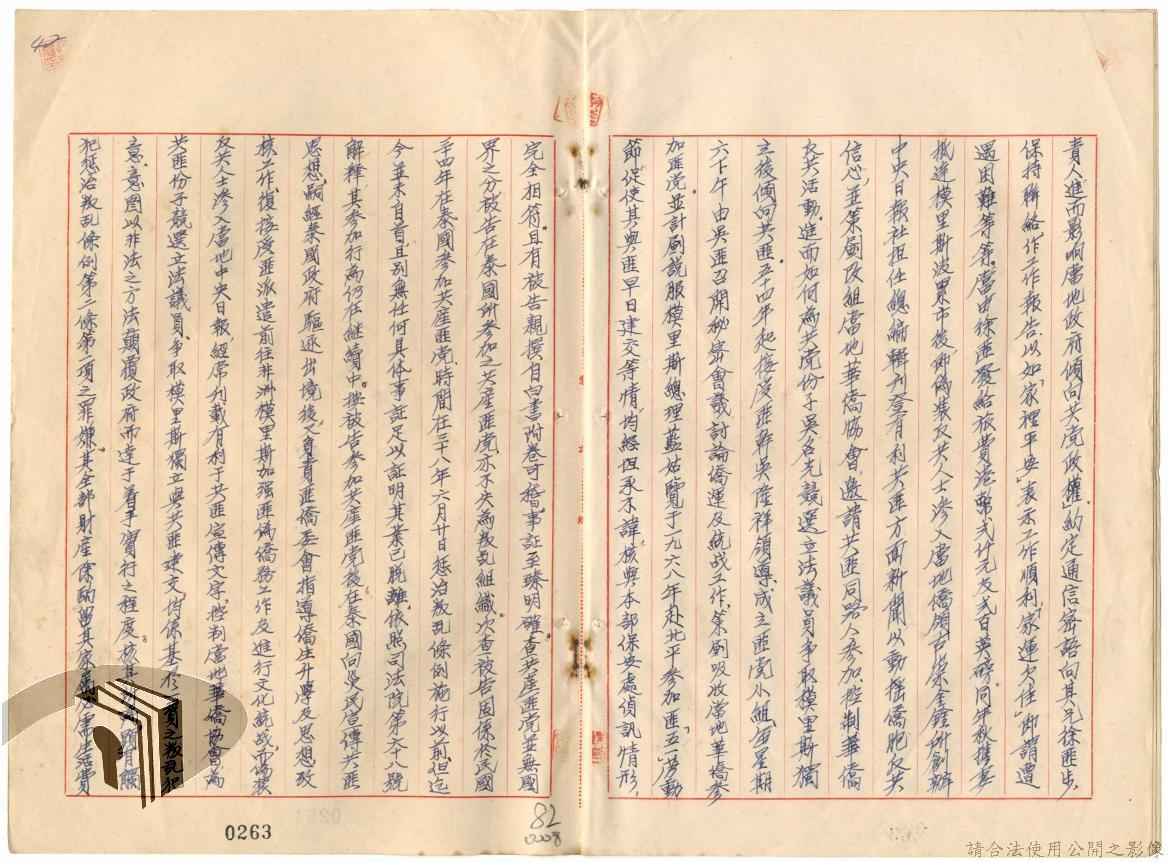 責人進而影响當地政府傾向共党政權」約定通信密語向其兄徐匪步
保持聯絡作工作報告以如「家裡平安」表示工作順利「家運欠佳」即謂遭
遇困難等等。當由徐匪發給旅費港幣弍仟元及弍百英磅。同年秋携妻
抵達模里斯波累市後即偽裝反共人士滲入當地僑領古榮金鏗所創辦
中央日報社担任總編輯刊登有利共匪方面新聞以動搖僑胞反共
信心並策劃改組當地華僑協會邀請共匪同路人參加控制華僑
反共活動進而如何為共党份子吳名先競選立法議員爭取模里斯獨
立後傾向共匪五十四年起接受匪幹吳隆祥領導成立匪党小組每星期
六下午由吳匪召開秘密會議討論僑運及統战工作策劃吸收當地華僑參
加匪党並計劃說服模里斯總理藍姑覽于一九六八年赴北平參加匪「五一」勞動
節促使其與匪早日建交等情均經坦承不諱核與本部保安處偵訊情形
完全相符。且有被告親撰自白書附卷可稽事証至臻明確查共產匪党並無國
界之分被告在泰國所參加之共產匪党亦不失為叛乱組織次查被告固係於民國
三四年在泰國參加共產匪党時間在三十八年六月廿日惩治叛乱條例施行以前但迄
今並未自首且別無任何具体事証足以証明其業已脫離依照司法院第六十八號
解釋其參加行為仍在繼續中按被告參加共產匪党後在泰國向災民宣傳共匪
思想嗣經泰國政府驅逐出境後又身責匪僑委會指導僑生升學及思想攷
核工作復接受匪派遣前往非洲模里斯加强匪偽僑務工作及進行文化統战亦偽裝
反共人士滲入當地中央日報經常刊載有利于共匪宣傳文字控制當地華僑協會為
共匪份子競選立法議員爭取模里斯獨立與共匪建交均係基於
實之叛乱犯
意意圖以非法之方法顛覆政府而達于着手實行之程度核其 顯有觸
犯惩治叛乱條例第二條第一項之罪嫌其全部財產除酌留其家屬必需生活費
0263
82
請合法使用公開之影像